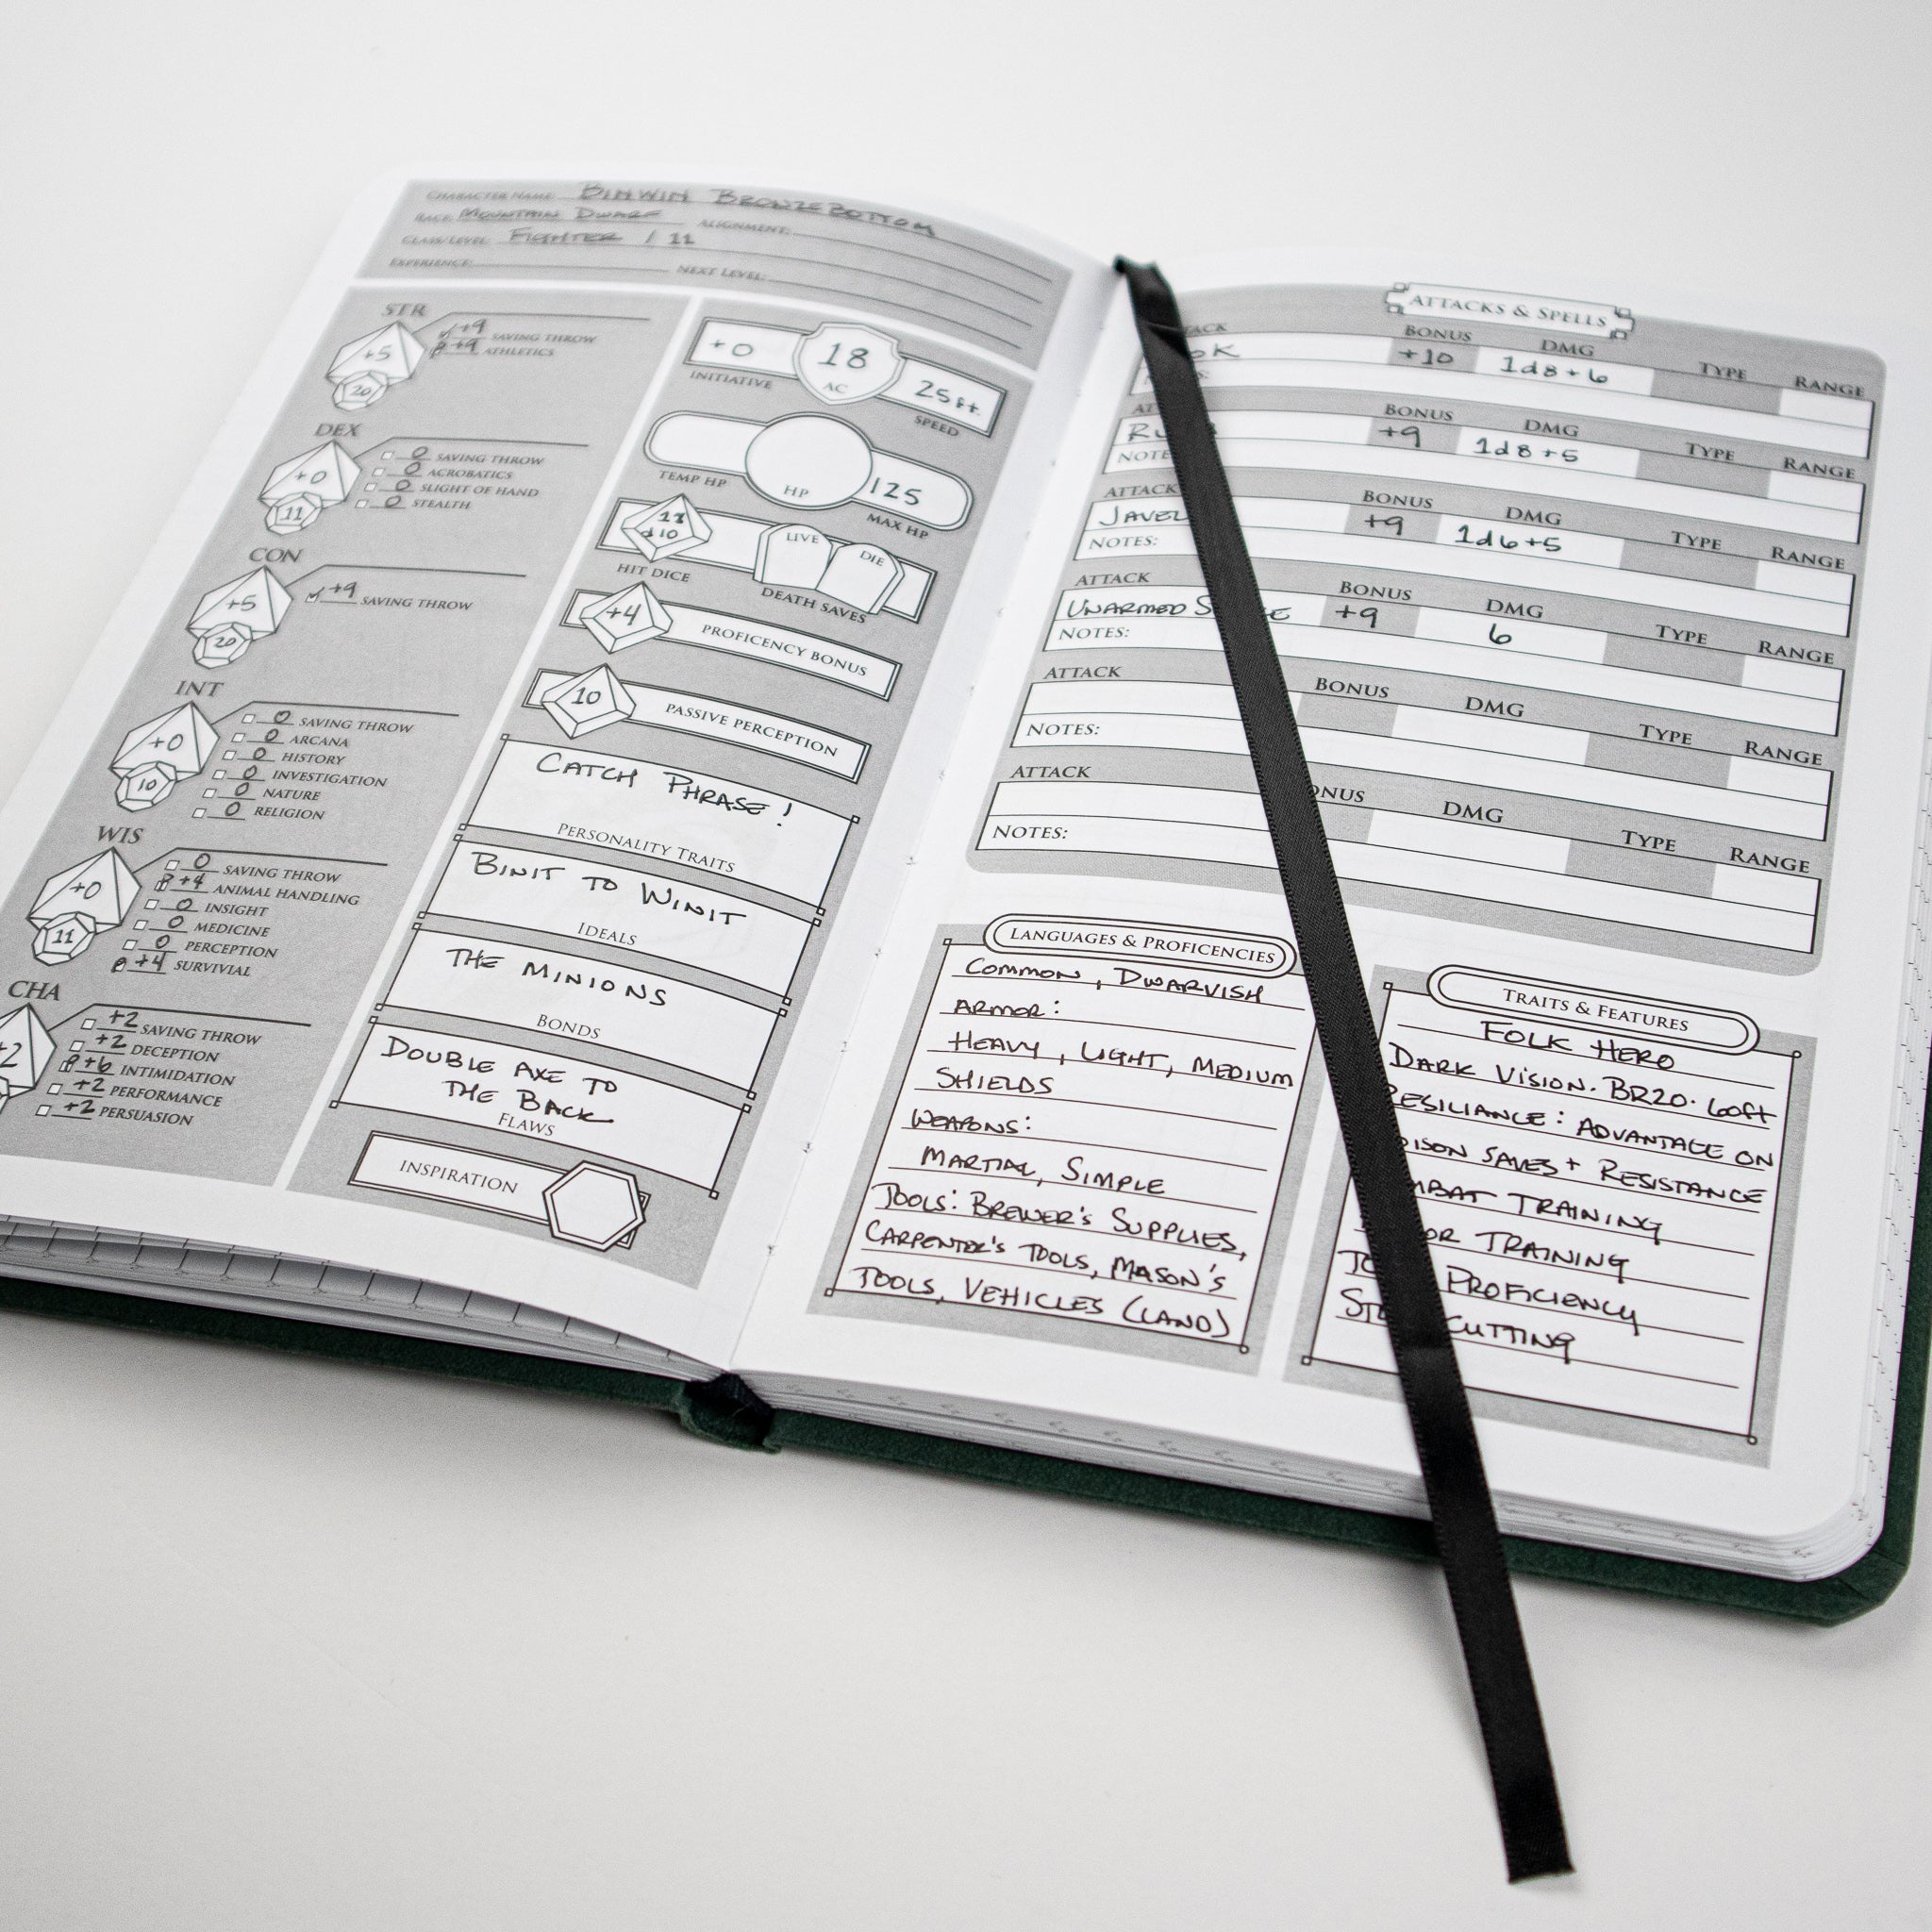 CHARACTER NAME: BINWIN BRONZEBOTTOM
RACE: MOUNTAIN DWARF ALIGNMENT:
CLASS/LEVEL: FIGHTER / 11
EXPERIENCE: NEXT LEVEL:
STR
+5
20
+9 SAVING THROW
+9 ATHLETICS
DEX
+0
11
0 SAVING THROW
0 ACROBATICS
0 SLIGHT OF HAND
0 STEALTH
CON
+5
20
+9 SAVING THROW
INT
+0
10
0 SAVING THROW
0 ARCANA
0 HISTORY
0 INVESTIGATION
0 NATURE
0 RELIGION
WIS
+0
11
0 SAVING THROW
+4 ANIMAL HANDLING
0 INSIGHT
0 MEDICINE
0 PERCEPTION
+4 SURVIVIAL
CHA
+2 SAVING THROW
+2 DECEPTION
+6 INTIMIDATION
+2 PERFORMANCE
+2 PERSUASION
+0 18 25ft.
INITIATIVE AC SPEED
125
TEMP HP HP MAX HP
d10 LIVE DIE
HIT DICE DEATH SAVES
+4 PROFICENCY BONUS
10 PASSIVE PERCEPTION
CATCH PHRASE!
PERSONALITY TRAITS
BINIT TO WINIT
IDEALS
THE MINIONS
BONDS
DOUBLE AXE TO
THE BACK
FLAWS
INSPIRATION
ATTACKS & SPELLS
BONUS DMG TYPE RANGE
+10 1d8+6
BONUS DMG TYPE RANGE
+9 1d8+5
ATTACK BONUS DMG TYPE RANGE
+9 1d6+5
NOTES:
ATTACK BONUS DMG TYPE RANGE
UNARMED +9 6
NOTES:
ATTACK BONUS DMG TYPE RANGE
NOTES:
ATTACK DMG TYPE RANGE
NOTES:
LANGUAGES & PROFICENCIES
COMMON, DWARVISH
ARMOR:
HEAVY, LIGHT, MEDIUM
SHIELDS
WEAPONS:
MARTIAL, SIMPLE
TOOLS: BREWER'S SUPPLIES,
CARPENTER'S TOOLS, MASON'S
TOOLS, VEHICLES (LAND)
TRAITS & FEATURES
FOLK HERO
DARK VISION. BR20. 60ft
RESILIANCE: ADVANTAGE ON
SAVES + RESISTANCE
TRAINING
TRAINING
PROFICIENCY
CUTTING